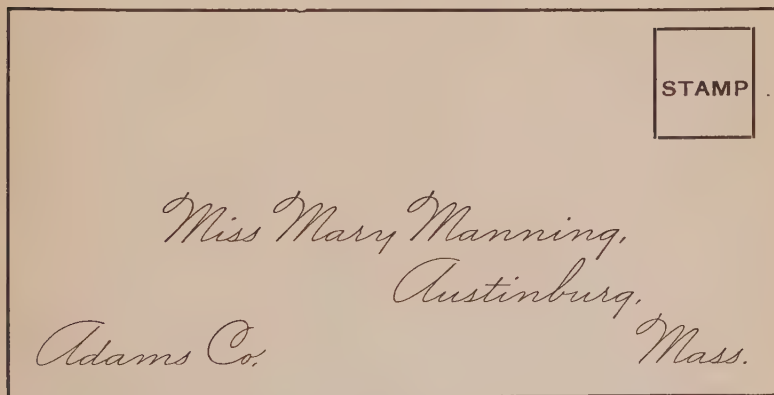 STAMP
Miss Mary Manning,
Austinburg,
Adams Co.
Mass.